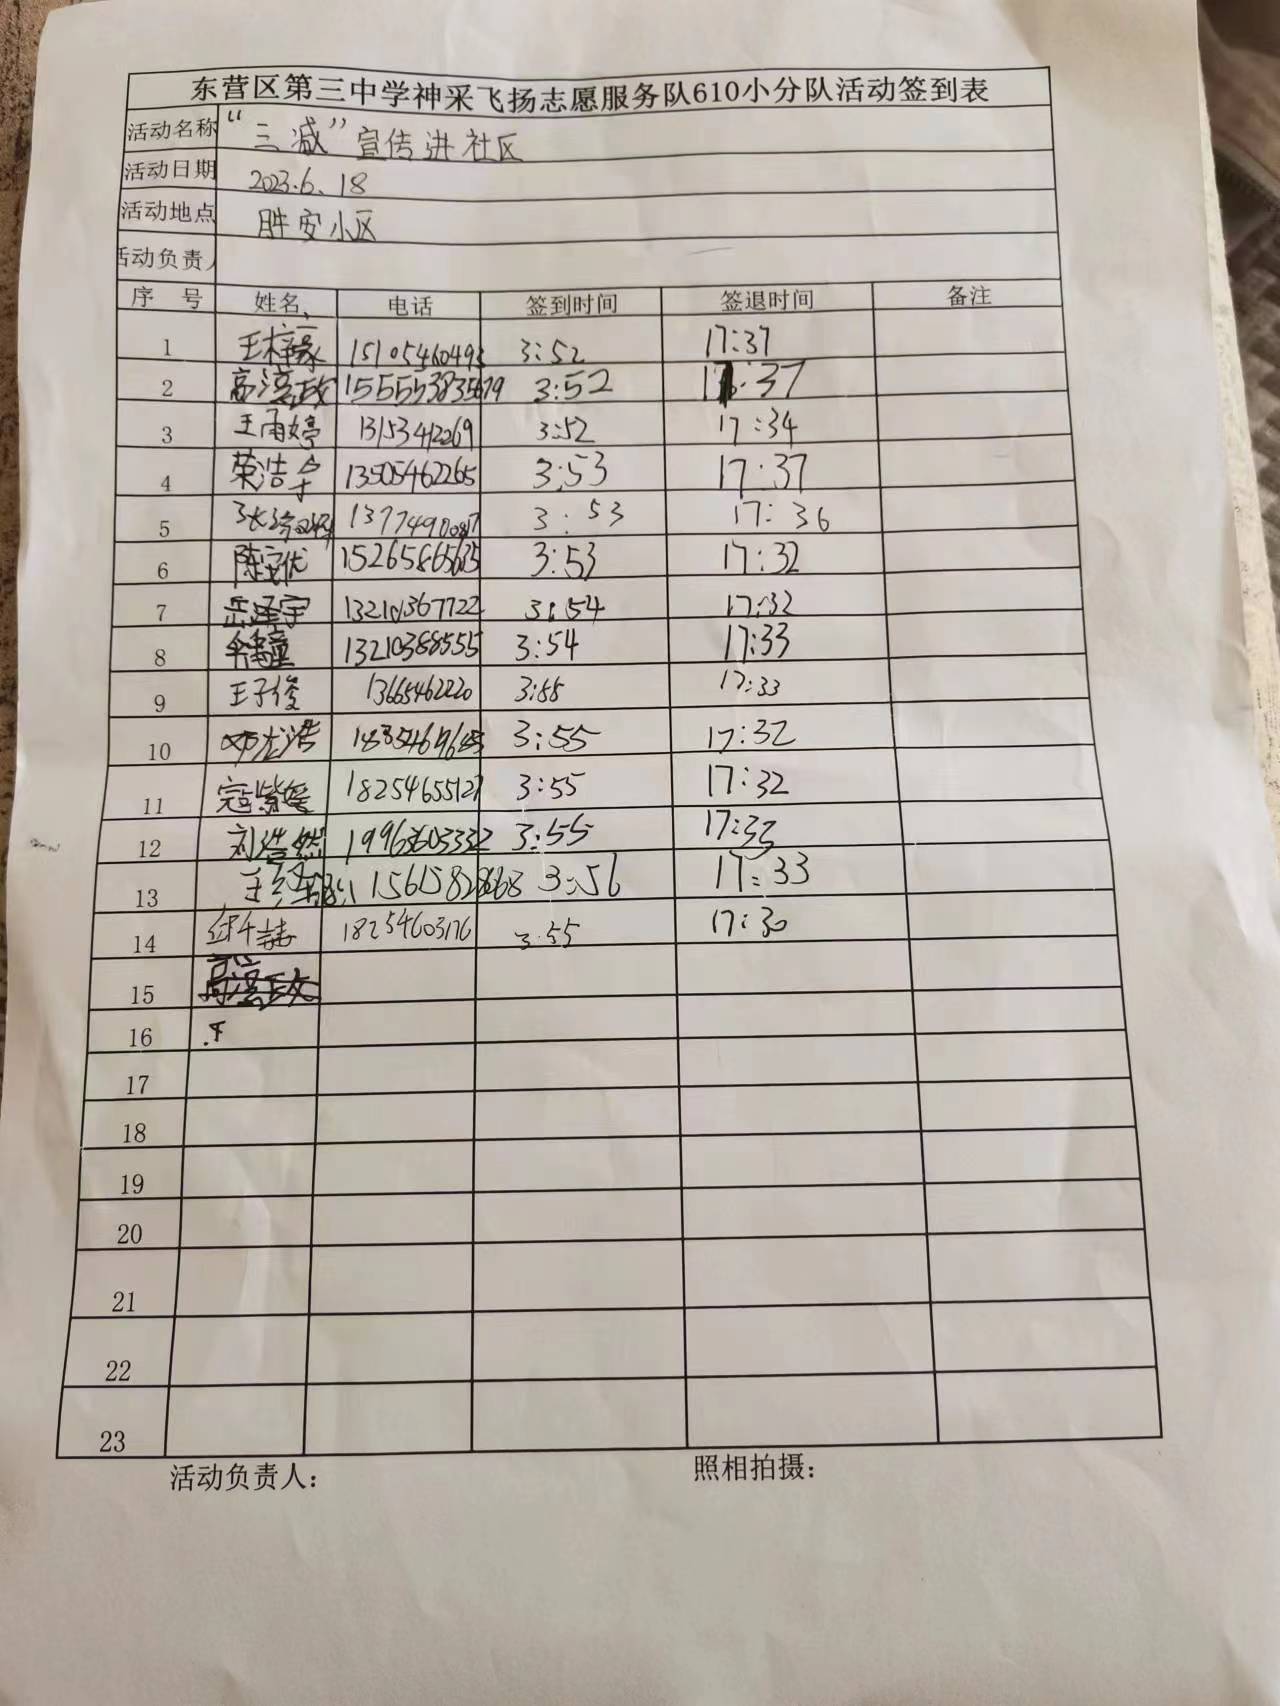 东营区第三中学神采飞扬志愿服务队610小分队活动签到表
活动名称 “三减”宣传进社区
活动日期 2023.6.18
活动地点 胜安小区
活动负责人
序 号 姓名 电话 签到时间 签退时间 备注
1 王梓豪 3:52 17:37
2 高滢政 3:52 17:37
3 王雨婷 3:52 17:34
4 荣浩宇 13505462265 3:53 17:37
5 3:53 17:36
6 15265865635 3:53 17:32
7 岳泽宇 13210367722 3:54 17:32
8 13210388555 3:54 17:33
9 王子俊 13665462220 3:55 17:33
10 3:55 17:32
11 寇紫媛 18254655127 3:55 17:32
12 刘浩然 19963603332 3:55 17:33
13 3:56 17:33
14 18254603176 3:55 17:30
15
16
17
18
19
20
21
22
23
活动负责人： 照相拍摄：